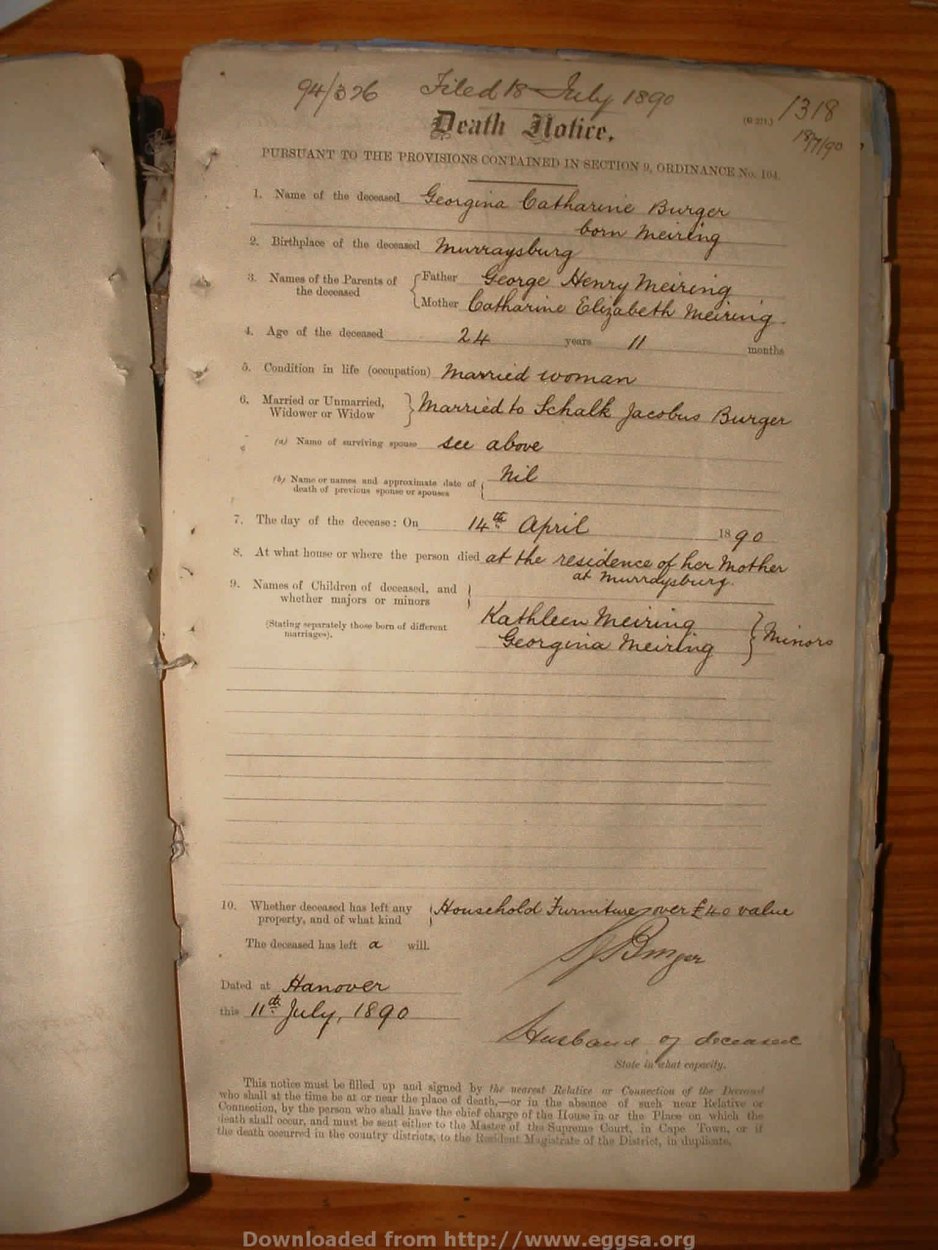 94/326 Filed 18 July 1890
(G 271.) 1318
18/7/90
Death Notice.
PURSUANT TO THE PROVISIONS CONTAINED IN SECTION 9, ORDINANCE No. 104.
1. Name of the deceased Georgina Catharine Burger
born Meiring
2. Birthplace of the deceased Murraysburg
3. Names of the Parents of the deceased Father George Henry Meiring
Mother Catharine Elizabeth Meiring
4. Age of the deceased 24 years 11 months
5. Condition in life (occupation) Married woman
6. Married or Unmarried, Widower or Widow Married to Schalk Jacobus Burger
(a) Name of surviving spouse see above
(b) Name or names and approximate date of death of previous spouse or spouses Nil
7. The day of the decease: On 14th April 1890
8. At what house or where the person died at the residence of her Mother
at Murraysburg.
9. Names of Children of deceased, and
whether majors or minors
(Stating separately those born of different
marriages).
Kathleen Meiring
Georgina Meiring } Minors
10. Whether deceased has left any
property, and of what kind Household Furniture over £40 value
The deceased has left a will.
SJBurger
Dated at Hanover
this 11th July, 1890
Husband of deceased
State in what capacity.
This notice must be filled up and signed by the nearest Relative or Connection of the Deceased
who shall at the time be at or near the place of death,—or in the absence of such near Relative or
Connection, by the person who shall have the chief charge of the House in or the Place on which the
death shall occur, and must be sent either to the Master of the Supreme Court, in Cape Town, or if
the death occurred in the country districts, to the Resident Magistrate of the District, in duplicate.
Downloaded from http://www.eggsa.org